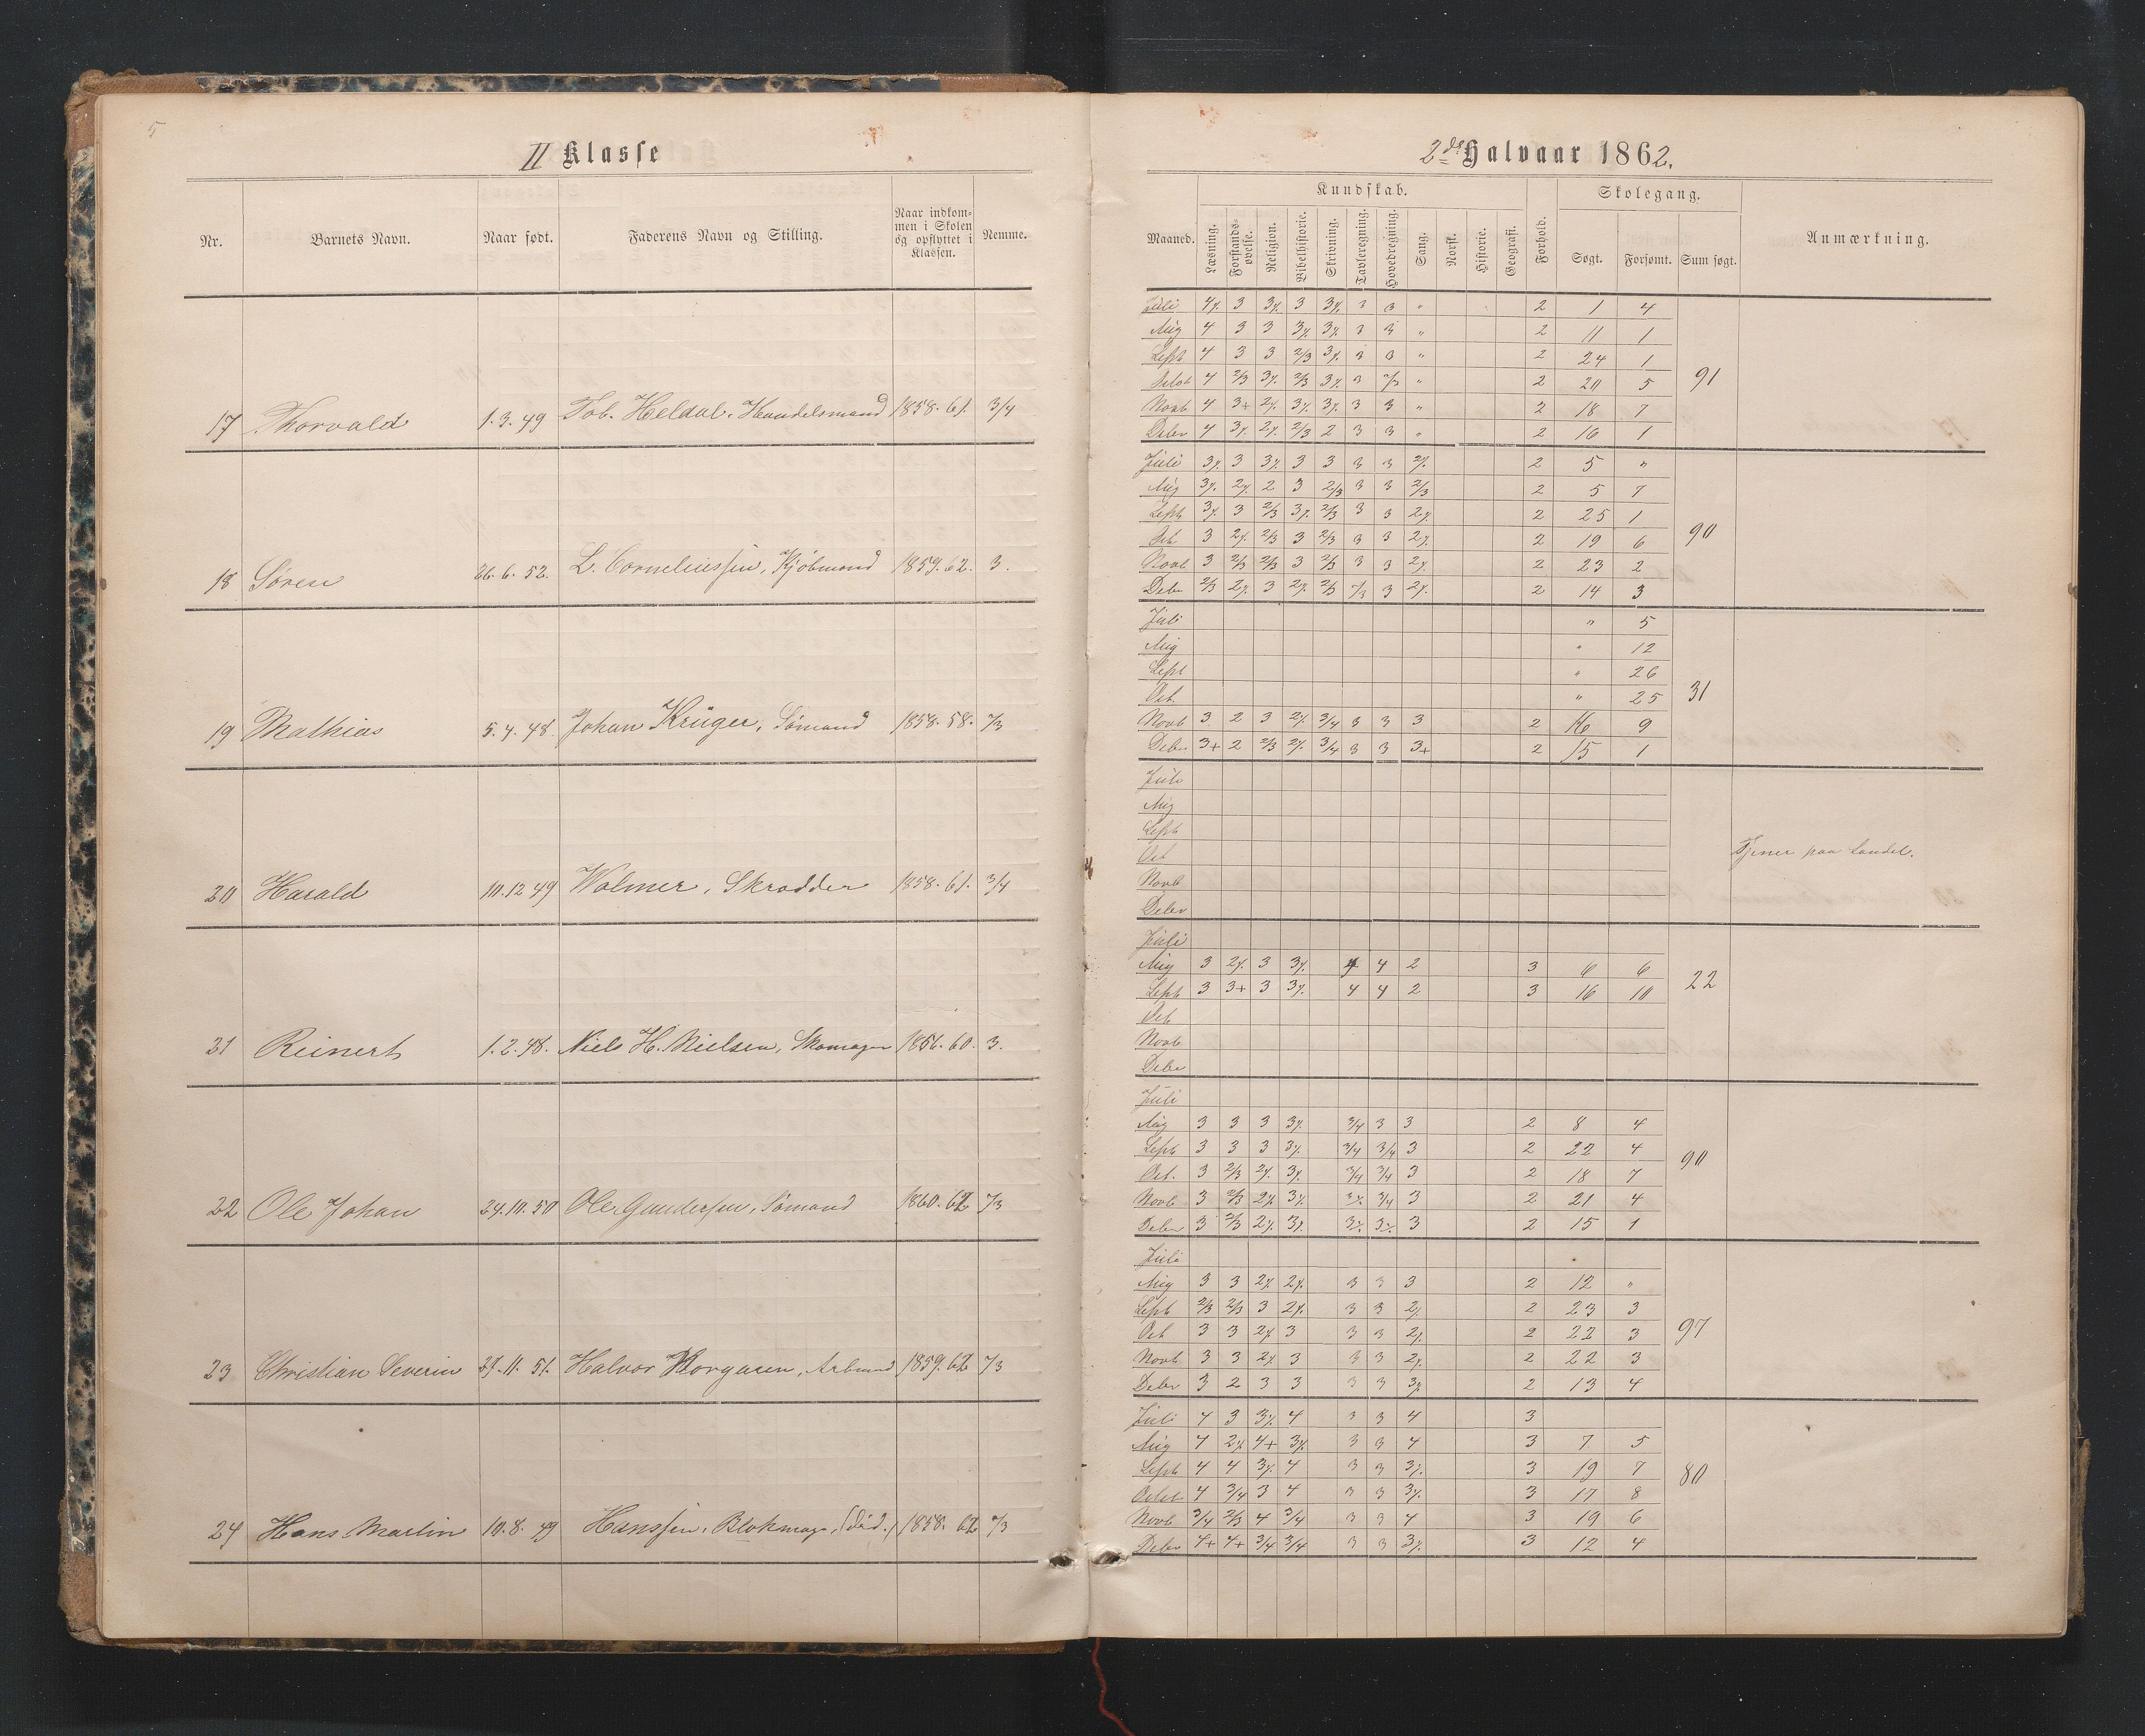 5
II Klasse
Nr. Barnets Navn. Naar født. Faderens Navn og Stilling. Naar indkommen i Skolen og opflyttet i Klassen. Nemme.
17 Thorvald 1.3.49 Tob. Heldal, Handelsmand 1858. 61. 3/4
18 Søren 26.6.52. L. Corneliussen, Kjøbmand 1859. 62. 3.
19 Mathias 5.4.48. Johan Krüger, Sømand 1858. 58. 2/3
20 Harald 10.12 49 Wolmer, Skrædder 1858. 61. 3/4
21 Reinert 1.2.48. Niels H. Nielsen, Skomager 1856. 60. 3.
22 Ole Johan 24.10.50 Ole Gundersen, Sømand 1860. 62 2/3
23 Christian Severin 11. 51. Halvor 1859. 62 2/3
24 Hans Martin 10.8.49 Hanssen, Blokmager, (død.) 1858. 62 2/3
2det Halvaar 1862.
Kundskab. Skolegang.
Maaned. Læsning. Forstandsøvelse. Religion. Bibelhistorie. Skrivning. Tavleregning. Hovedregning. Sang. Norsk. Historie. Geografi. Forhold. Søgt. Forsømt. Sum søgt. Anmærkning.
Juli 4% 3 3% 3 3% 3 3 " 2 1 4
Aug 4 3 3 3% 3% 3 3 " 2 11 1
Sept 4 3 3 2/3 3% 3 3 " 2 24 1
Octob 4 2/3 3% 2/3 3% 3 2/3 " 2 20 5 91
Novb 4 3+ 2% 3% 3% 3 3 " 2 18 7
Debr 4 3% 2% 2/3 2 3 3 " 2 16 1
Juli 3% 3 3% 3 3 3 3 2% 2 5 "
Aug 3% 2% 2 3 2/3 3 3 2/3 2 5 7
Sept 3% 3 2/3 3% 2/3 3 3 2% 2 25 1
Oct 3 2% 2/3 3 2/3 3 3 2% 2 19 6 90
Novb 3 2/3 2/3 3 2/3 3 3 2% 2 23 2
Debr 2/3 2% 3 2% 2/3 2/3 3 2% 2 14 3
Juli " 5
Aug " 12
Sept " 26
Oct. " 25 31
Novb 3 2 3 2% 3/4 3 3 3 2 16 9
Debr 3+ 2 2/3 2% 3/4 3 3 3+ 2 15 1
Juli
Aug
Sept
Oct Tjener paa Landet.
Novb
Debr
Juli
Aug 3 2% 3 3% 4 4 2 3 6 6
Sept 3 3+ 3 3% 4 4 2 3 16 10 22
Oct
Novb
Debr
Juli
Aug 3 3 3 3% 3/4 3 3 2 8 4
Sept 3 3 3 3% 3/4 3/4 3 2 22 4
Oct. 3 2/3 2% 3% 3/4 3/4 3 2 18 7 90
Novb 3 2/3 2% 3% 3% 3/4 3 2 21 4
Debr 3 2/3 2% 3% 3% 3% 3 2 15 1
Juli
Aug 3 3 2% 2% 3 3 3 2 12 "
Sept 2/3 2/3 3 2% 3 3 2% 2 23 3
Oct 3 3 2% 3 3 3 2% 2 22 3 97
Novb 3 3 2% 3 3 3 2% 2 22 3
Debr 3 2 3 3 3 3 3% 2 13 4
Juli 4 3 3% 4 3 3 4 3
Aug 4 2% 4+ 3% 3 3 4 3 7 5
Sept 4 4 3% 4 3 3 3% 3 19 7
Octob 4 3/4 3 4 3 3 3% 3 17 8 80
Novb 3/4 2/3 4 3/4 3 3 4 3 19 6
Debr 4+ 4+ 3/4 3/4 3 3 3% 3 12 4